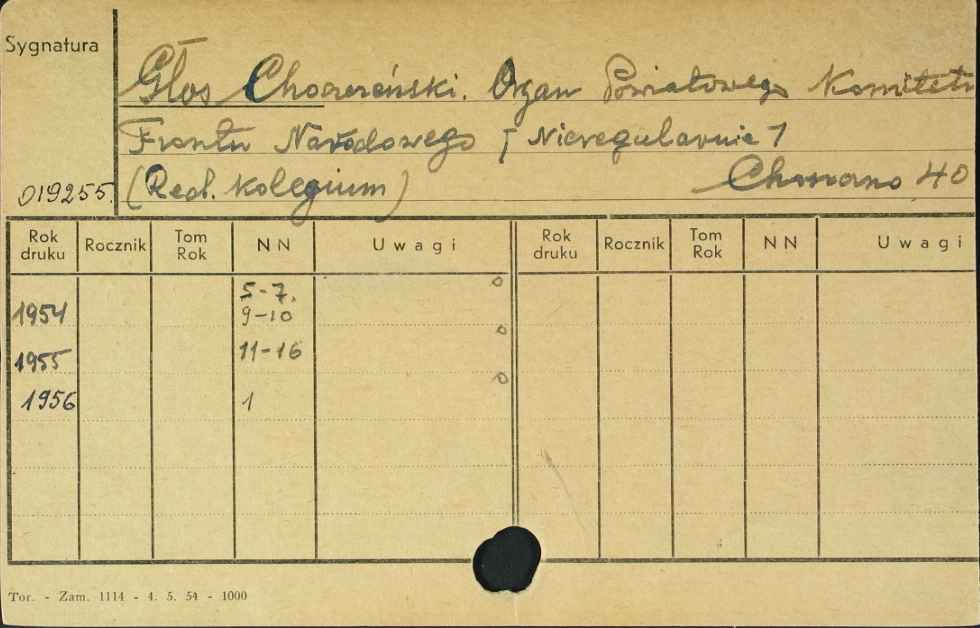 Sygnatura
Głos Choszczeński. Organ Powiatowego Komitetu
Frontu Narodowego [Nieregularnie]
019255. (Red. Kolegium) 40
Rok druku Rocznik Tom Rok NN Uwagi Rok druku Rocznik Tom Rok NN Uwagi
5-7.
1954 9-10
1955 11-16
1956 1
Tor. - Zam. 1114 - 4. 5. 54 - 1000